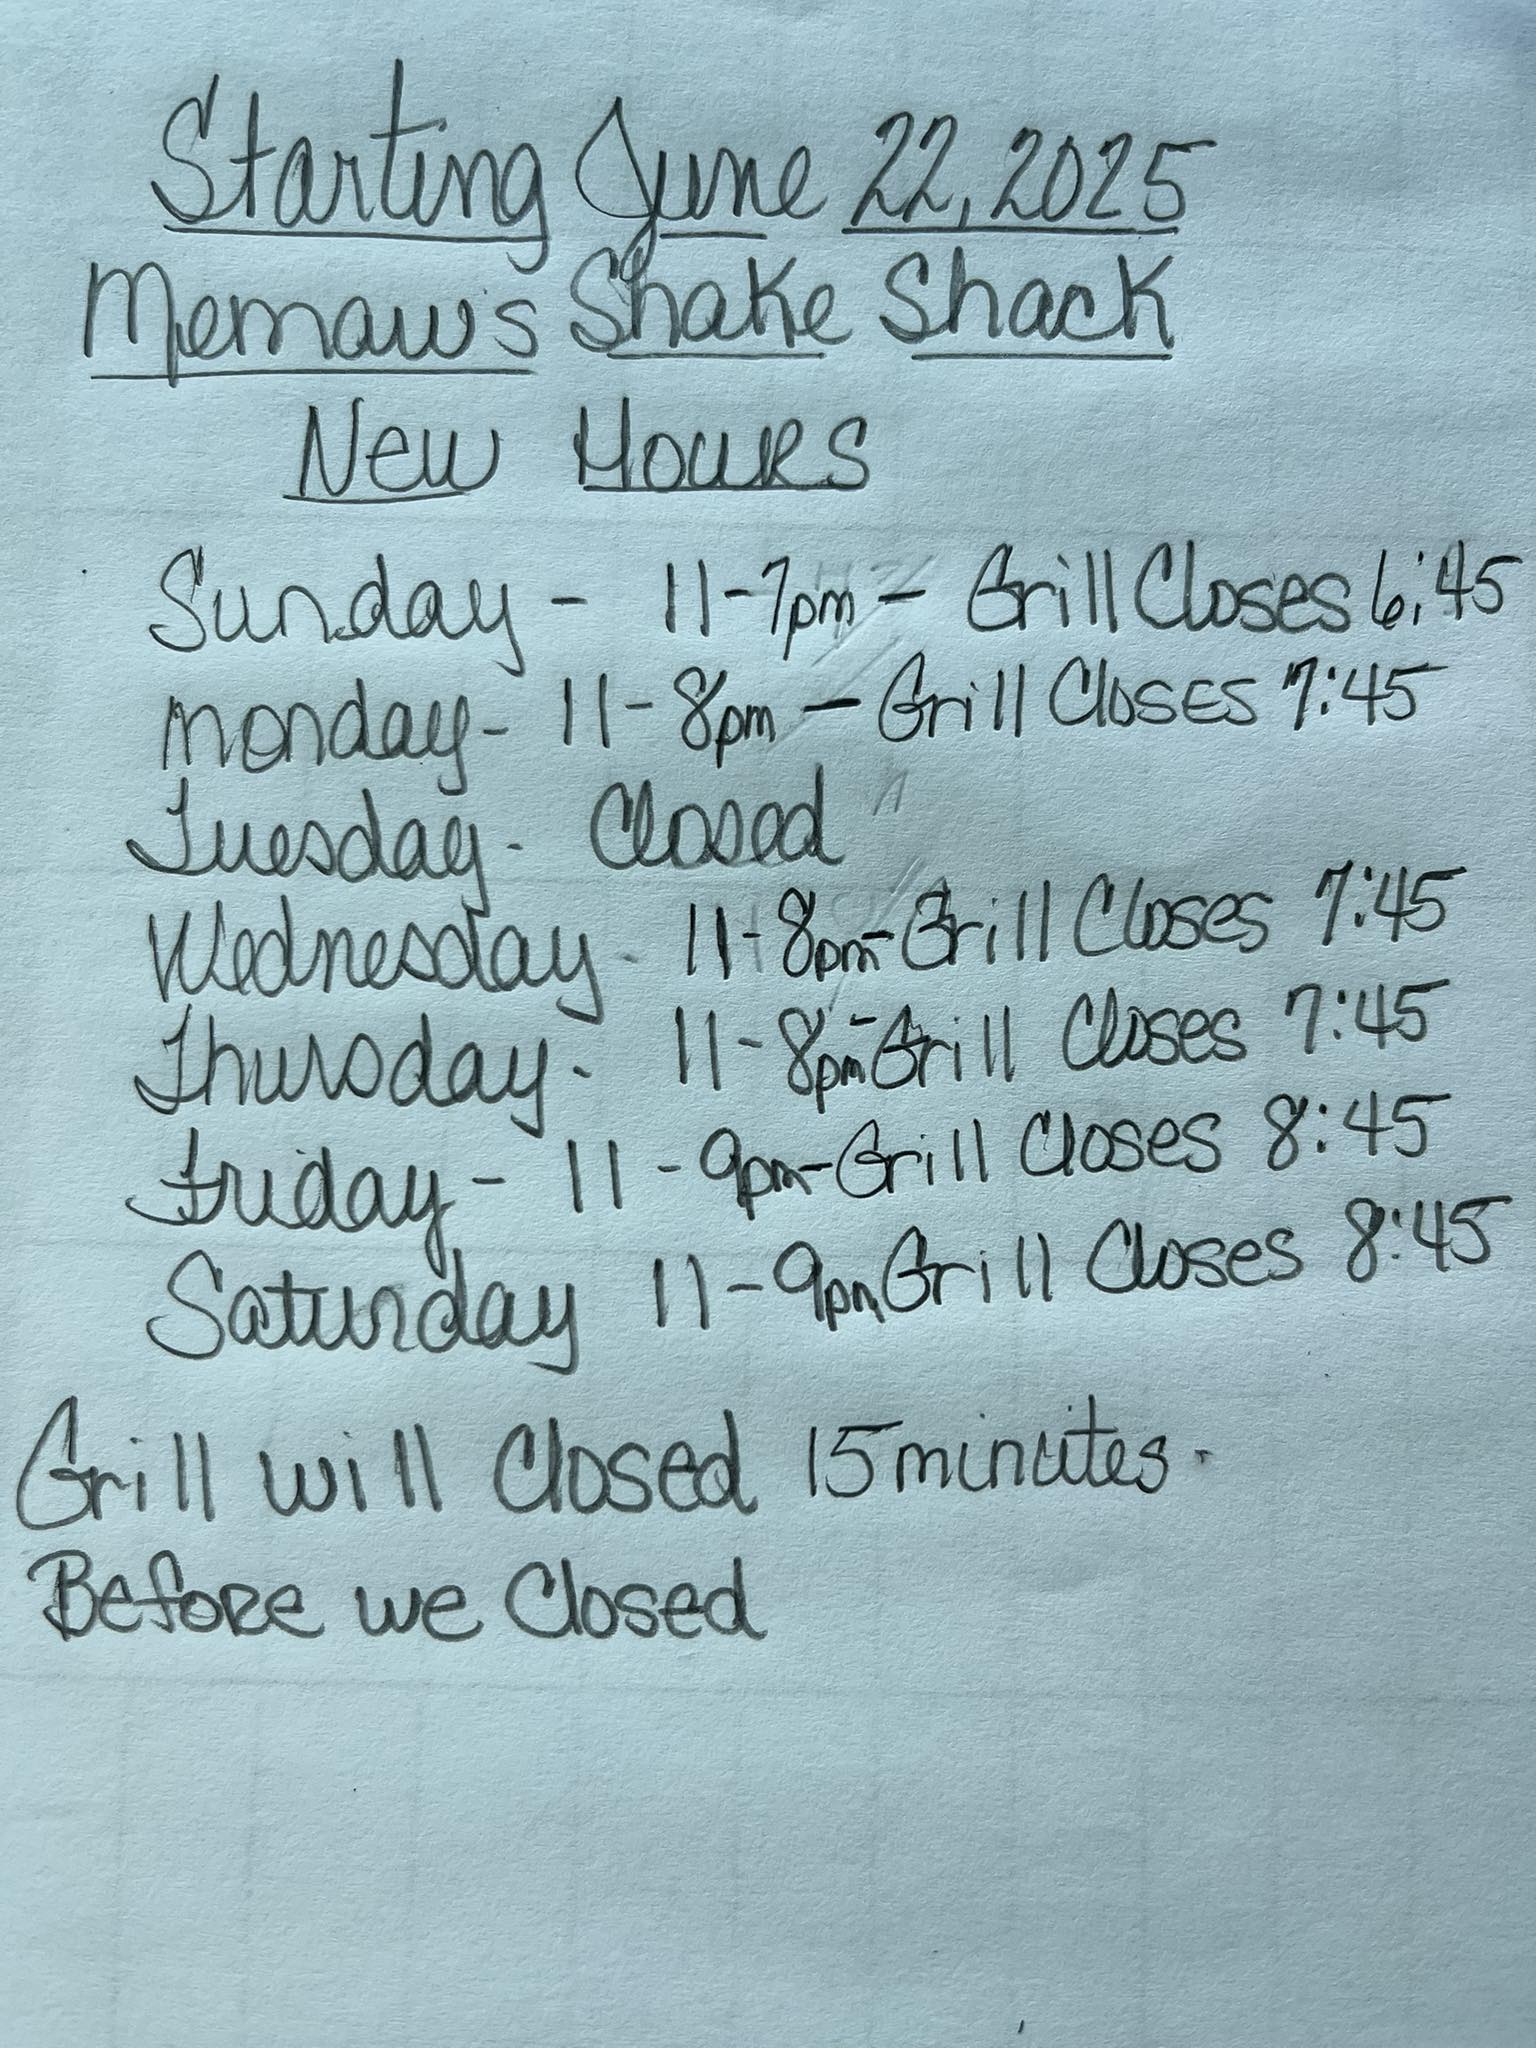 Starting June 22, 2025
Memaw's Shake Shack
New Hours
Sunday - 11-7pm - Grill Closes 6:45
Monday - 11-8pm - Grill Closes 7:45
Tuesday - Closed
Wednesday - 11-8pm - Grill Closes 7:45
Thursday - 11-8pm - Grill Closes 7:45
Friday - 11-9pm - Grill Closes 8:45
Saturday 11-9pm Grill Closes 8:45
Grill will Closed 15 minutes.
Before we Closed